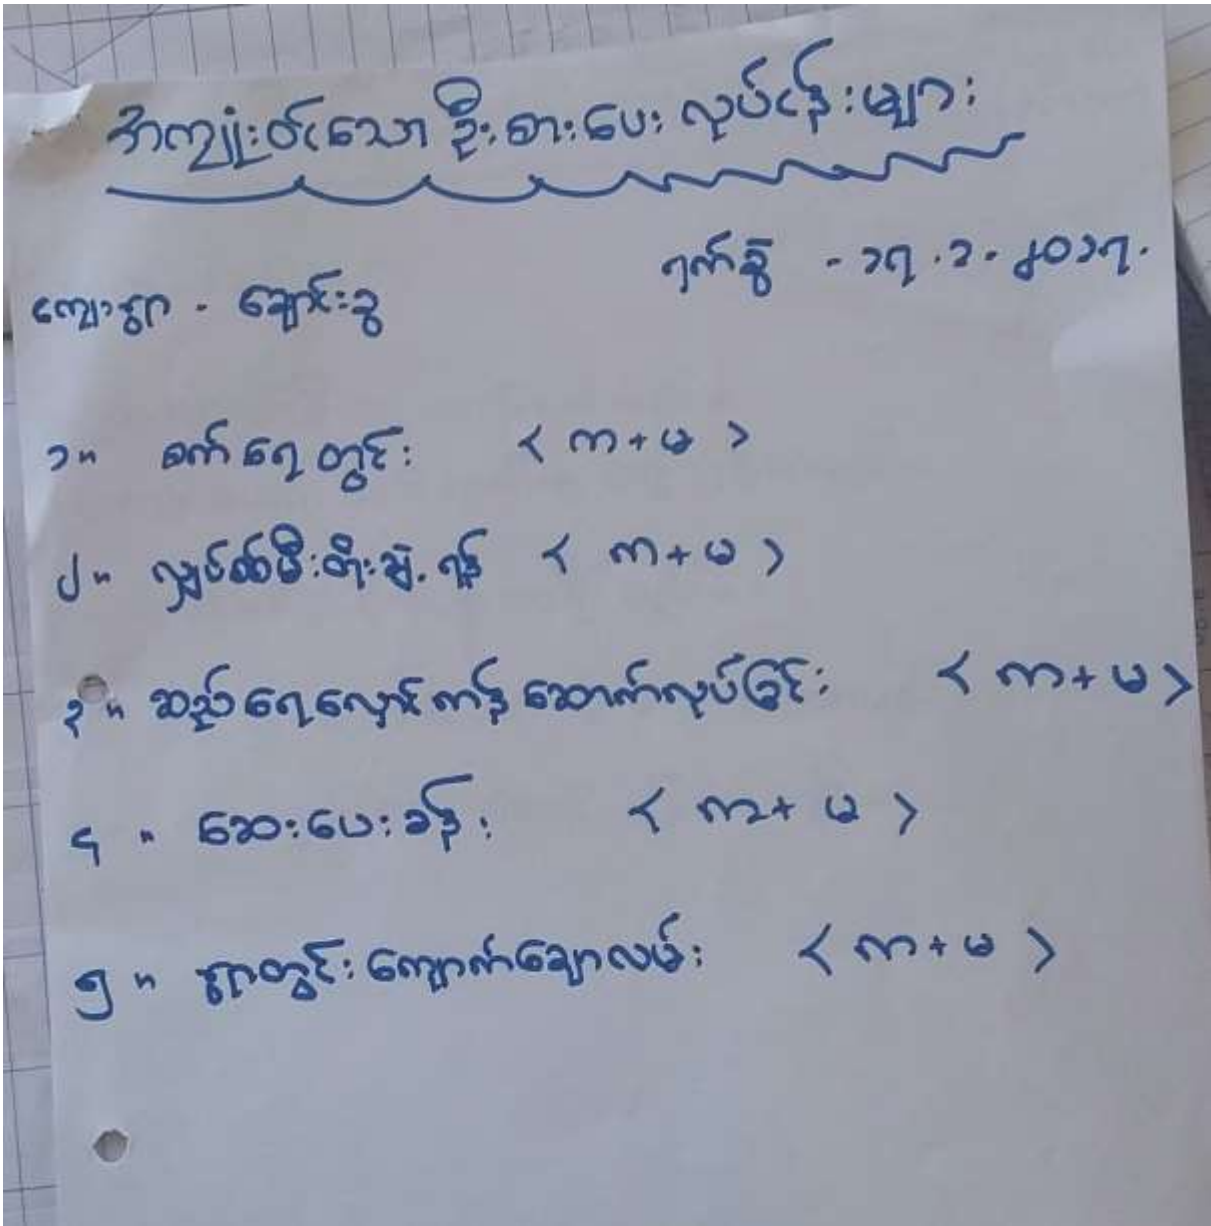 အကျုံးဝင်သော ဦးစားပေး လုပ်ငန်းများ
ရက်စွဲ - ၁၇.၁.၂၀၁၇.
ကျေးရွာ - ချောင်းခွ
၁။ စက်ရေတွင်း < ကာ + မ >
၂။ လျှပ်စစ်မီးတိုးချဲ့ရန် < ကာ + မ >
၃။ ဆည်ရေလှောင်ကန်ဆောက်လုပ်ခြင်း < ကာ + မ >
၄။ ဆေးပေးခန်း < ကာ + မ >
၅။ ရွာတွင်းကျောက်ချောလမ်း < ကာ + မ >